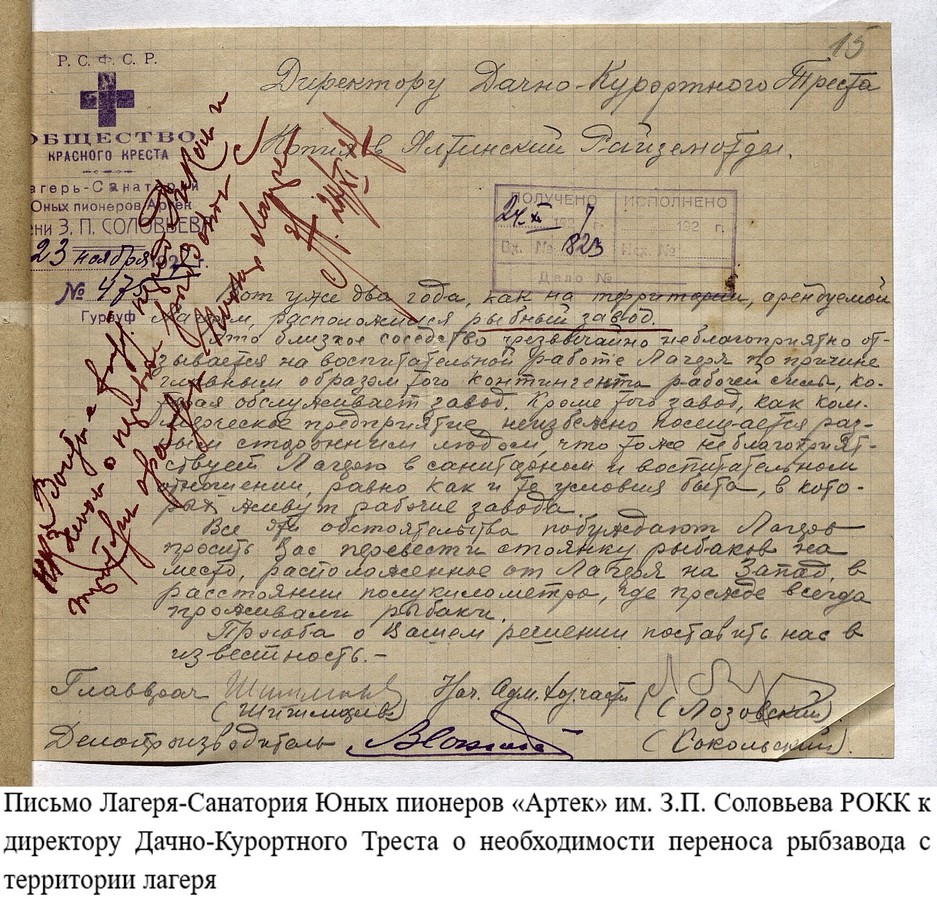 15
Р. С. Ф. С. Р.
ОБЩЕСТВО
КРАСНОГО КРЕСТА
агерь-Санаторий
Юных пионеров Артек
ени З. П. СОЛОВЬЕВА
23 ноября 192
№ 475
Гурзуф
Директору Дачно-Курортного Треста
Копия в Ялтинский Райземотдел.
ПОЛУЧЕНО
24 XI 1927 г.
Вх. № 823
ИСПОЛНЕНО
192 г.
Исх. №
Дело №
Вот уже два года, как на территории, арендуемой
Лагерем, расположился рыбный завод.
Это близкое соседство чрезвычайно неблагоприятно от-
зывается на воспитательной работе Лагеря по причине
главным образом того контингента рабочей силы, ко-
торая обслуживает завод. Кроме того завод, как ком-
мерческое предприятие, неизбежно посещается раз-
ным сторонним людом, что тоже неблагоприят-
ствует Лагерю в санитарном и воспитательном
отношении, равно как и те условия быта, в кото-
рых живут рабочие завода.
Все эти обстоятельства побуждают Лагерь
просить Вас перевести стоянку рыбаков на
место, расположенное от Лагеря на Запад, в
расстоянии полукилометра, где прежде всегда
проживали рыбаки.
Просьба о Вашем решении поставить нас в
известность.-
Главврач
(Шишмарев)
Нач. Адм. хозчасти
(Лозовский)
Делопроизводитель
(Сокольский).
Письмо Лагеря-Санатория Юных пионеров «Артек» им. З.П. Соловьева РОКК к
директору Дачно-Курортного Треста о необходимости переноса рыбзавода с
территории лагеря